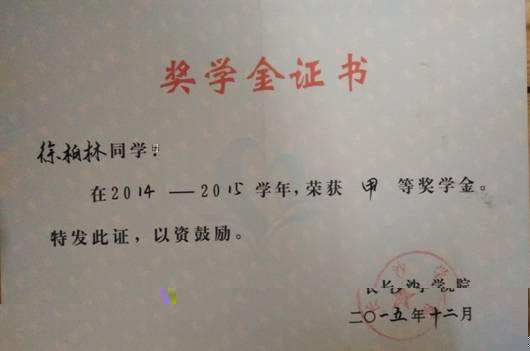 奖学金证书
徐柏林同学:
在2014—2015学年,荣获 甲 等奖学金。
特发此证,以资鼓励。
长沙学院
二〇一五年十二月